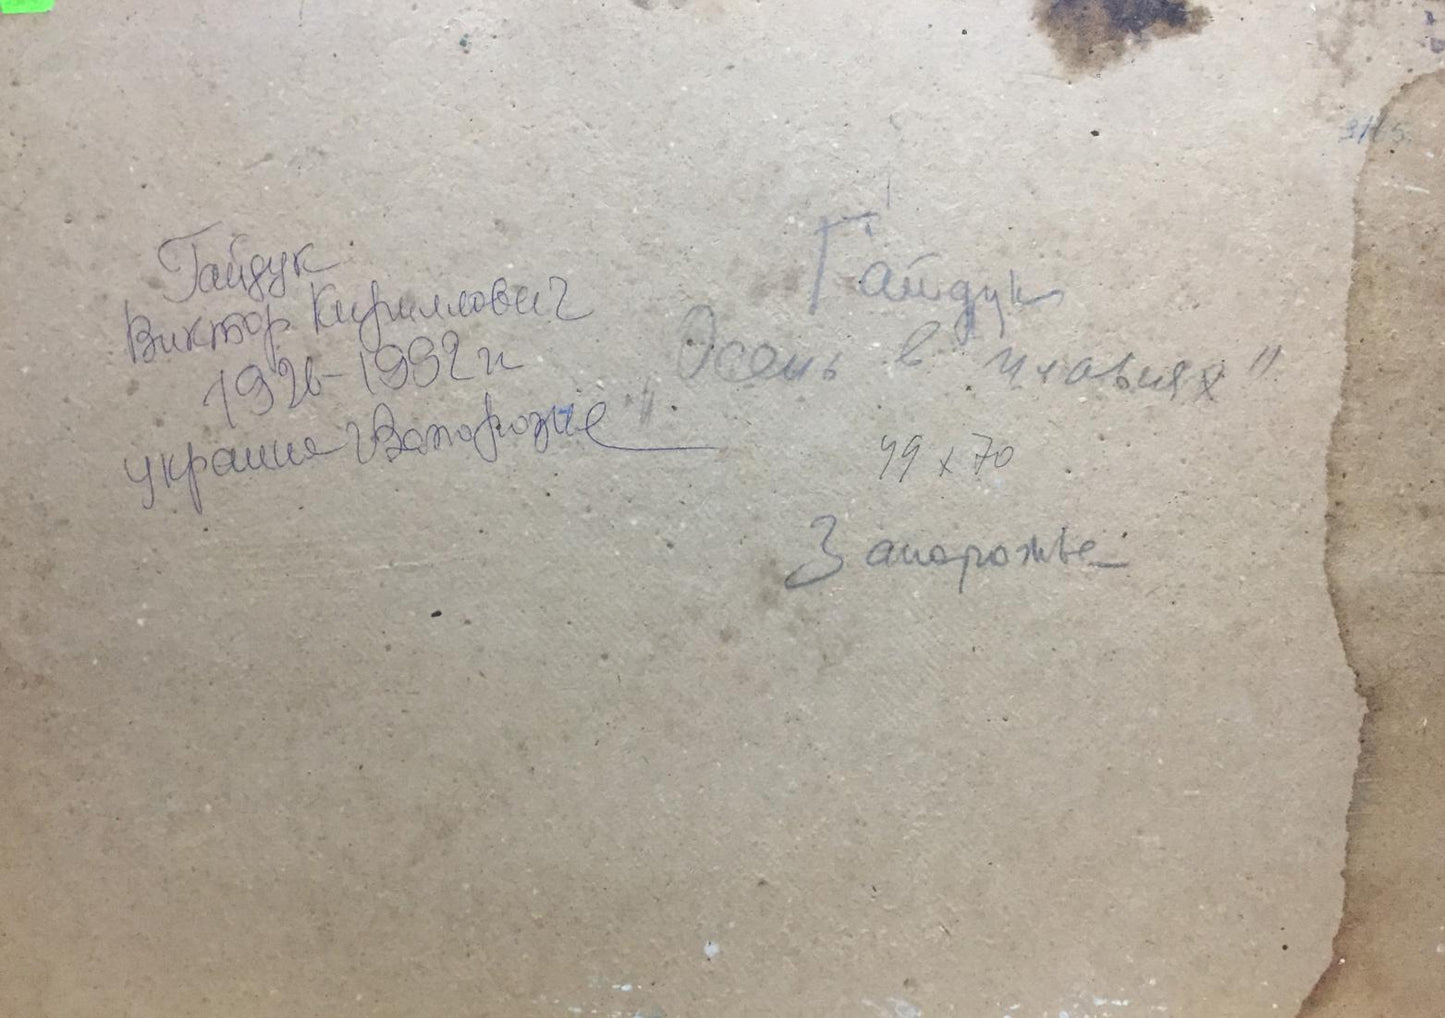 Гайдук
Виктор Кириллович
1926-1992 гг
Украина г Запорожье
Гайдук
"Осень в плавнях"
49 x 70
Запорожье